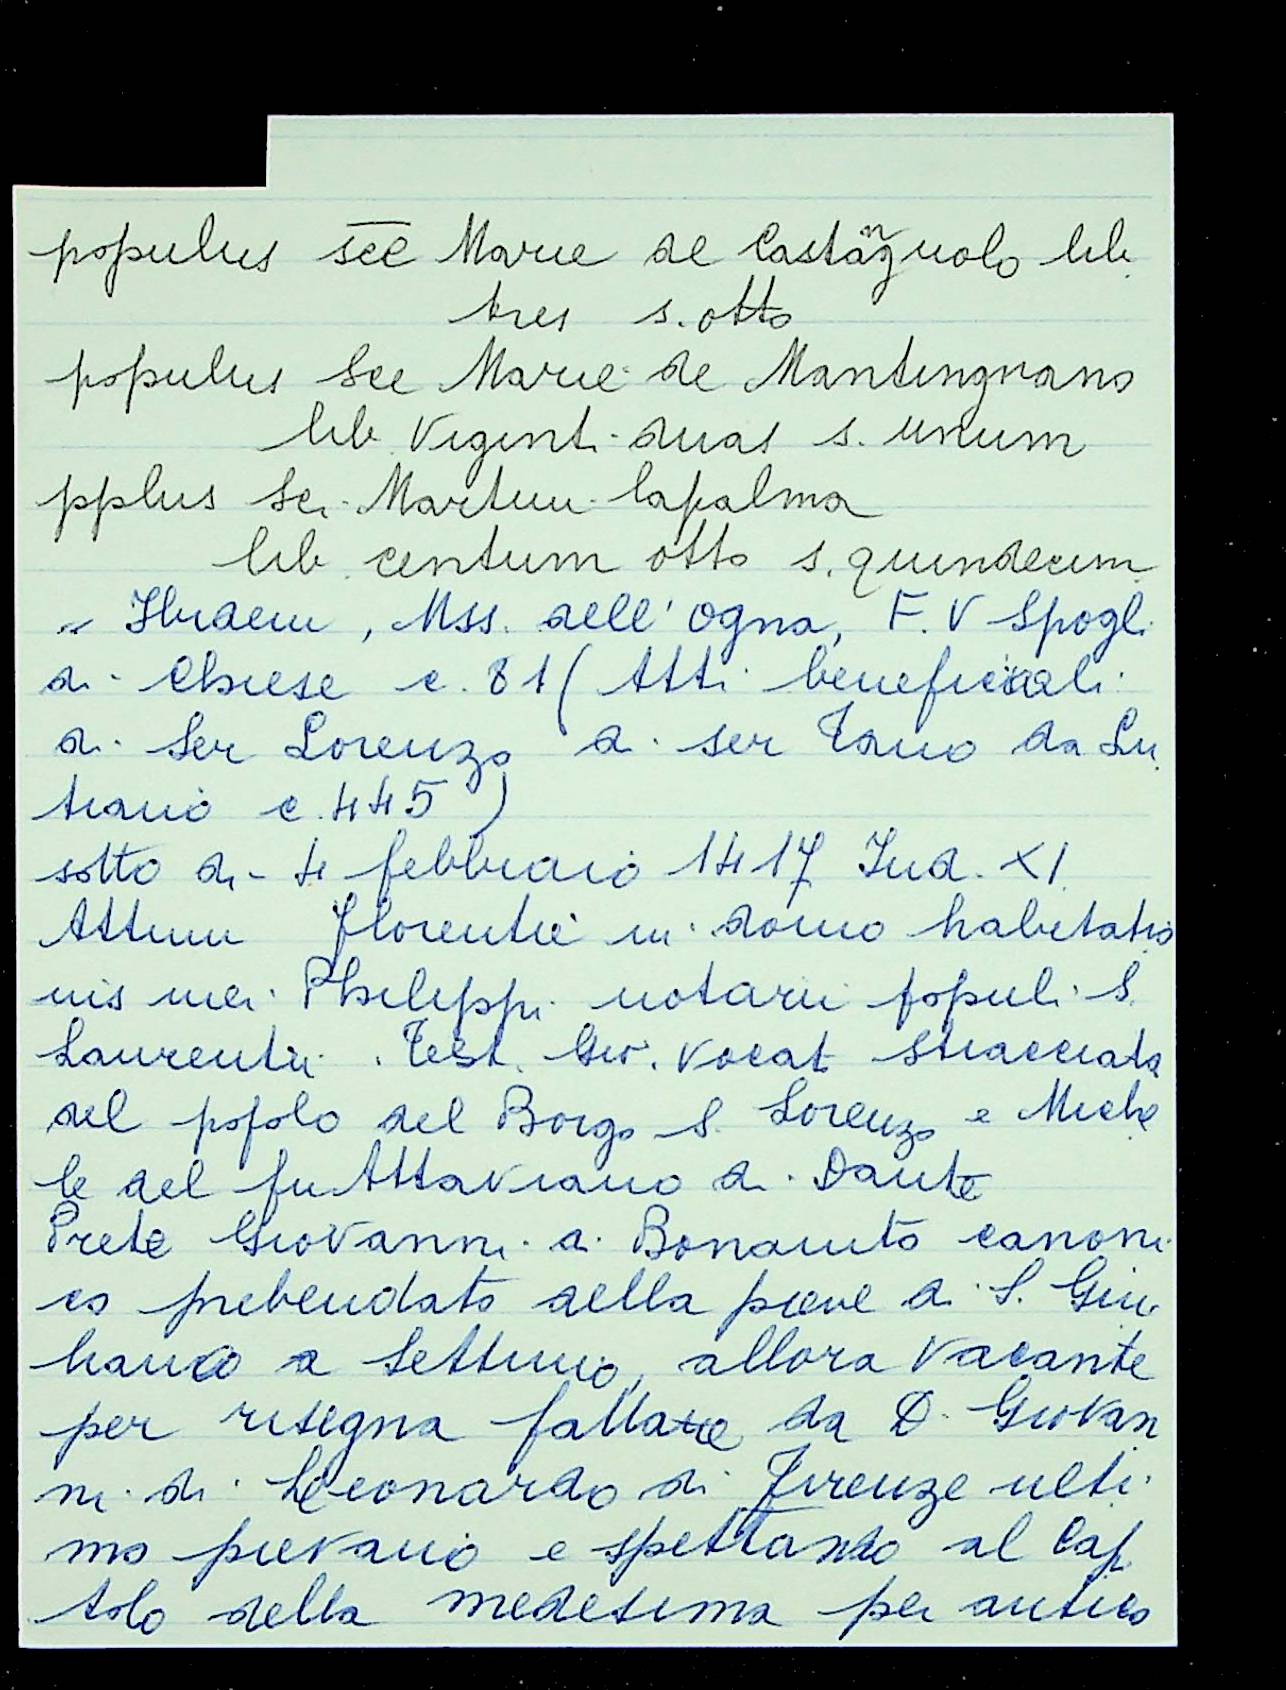 populus sce Marie de Castangnolo lib.
tres s. otto
populus Sce Marie de Mantingnano
lib. viginti duas s. unum
pplus Sci Martini lapalma
lib. centum otto s. quindecim
" Ibidem, Mss. dell'Ogna, F. V Spogli
di Chiese c. 81 (Atti beneficiali
di Ser Lorenzo di ser Tano da Lu
tiano c. 445)
sotto di 4 febbraio 1417 Ind. XI
Attum Florentie in domo habitatio
nis mei Philippi notarii populi S.
Laurentii. Test. Gio. vocat Stracciata
del popolo del Borgo S. Lorenzo e Miche
le del fu Attaviano di Dante
Prete Giovanni di Bonaiuto canoni
co prebendato della pieve di S. Giu
liano a Settimo, allora vacante
per risegna fattane da D. Giovan
ni di Leonardo di Firenze ulti
mo pievano e spettando al Capi
tolo della medesima per antico